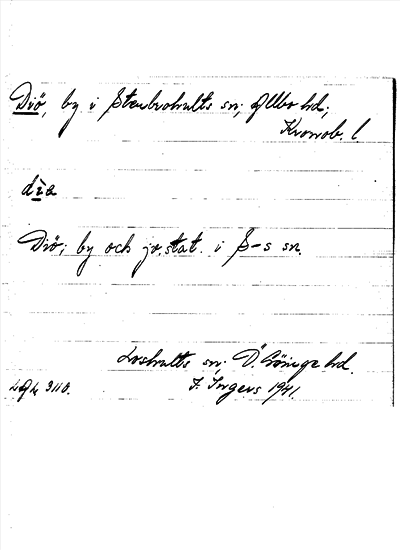 Diö, by i Stenbrohults sn, Allbo hd,
Kronob. l.
dìa
Diö; by och jv.stat. i S-s sn.
Loshults sn. Ö. Göinge hd.
LAL 3110. I. Ingers 1941.